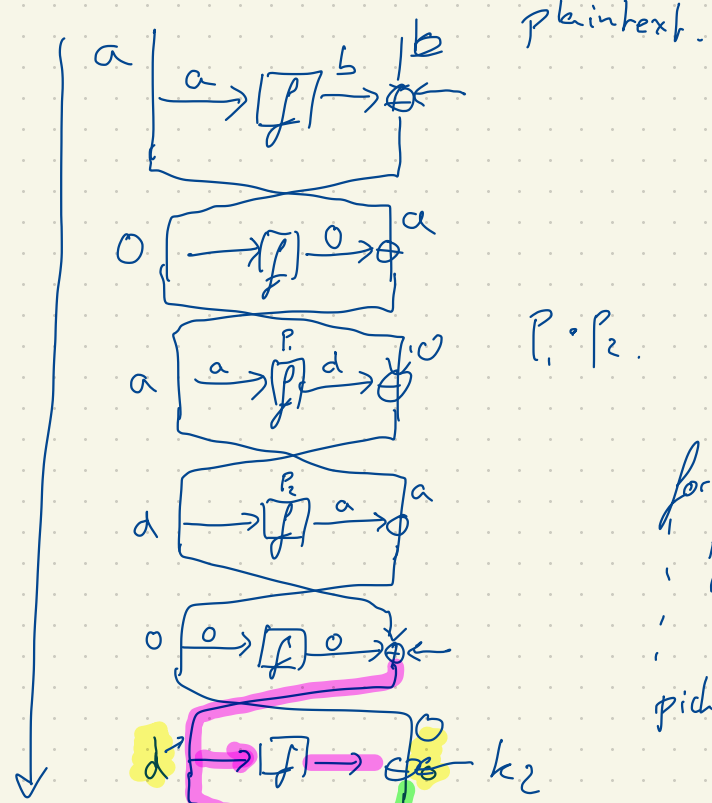 plaintext.
a a f b b
0 f 0 a
P1
a a f d 0
P1 · P2.
P2
d f a a
for
0 0 f 0
pich
d f 0 k2